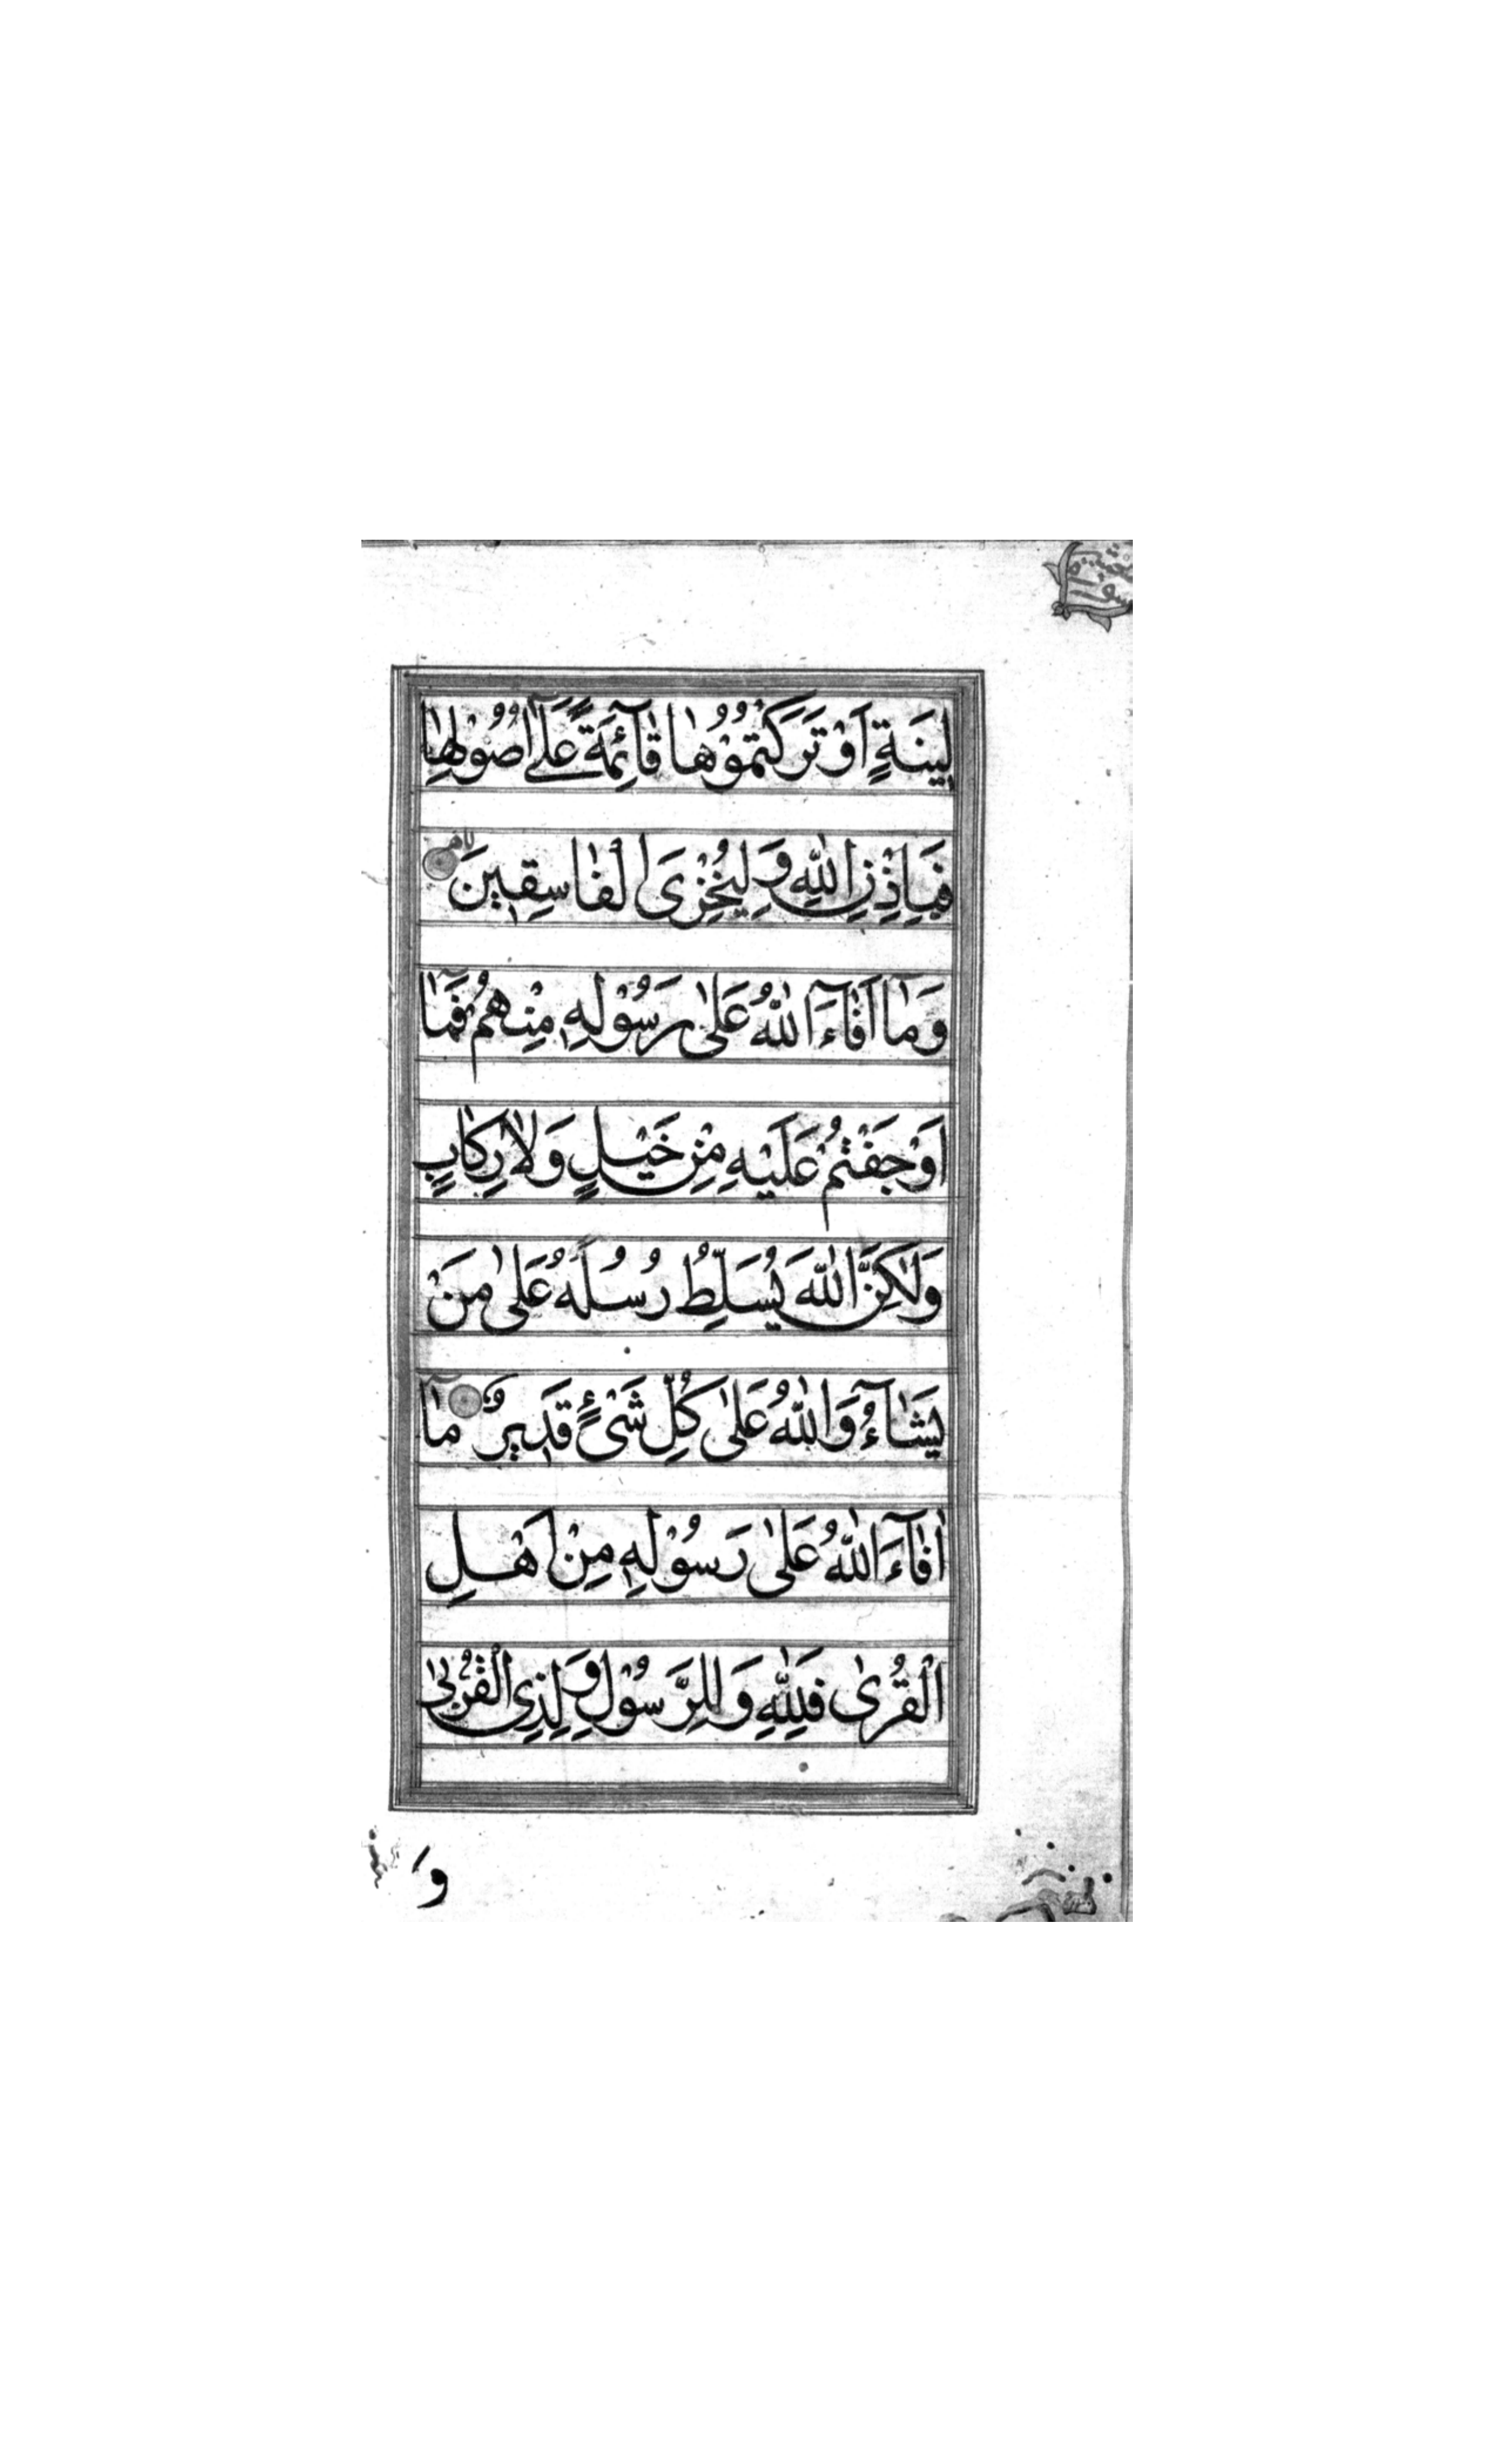 لِينَةٍ اَوْ تَرَكْتُمُوْهٰا قٰآئِمَةً عَلٰٓى اُصُوْلِهٰا
فَبِاِذْنِ اللّٰهِ وَلِيُخْزِىَ الْفٰاسِقِينَ
وَمٰٓا اَفٰآءَ اللّٰهُ عَلٰى رَسُوْلِهِ مِنْهُمْ فَمٰٓا
اَوْجَفْتُمْ عَلَيْهِ مِنْ خَيْلٍ وَلٰا رِكٰابٍ
وَلٰكِنَّ اللّٰهَ يُسَلِّطُ رُسُلَهُ عَلٰى مَنْ
يَشٰآءُ وَاللّٰهُ عَلٰى كُلِّ شَىْءٍ قَدِيرٌ مٰٓا
اَفٰآءَ اللّٰهُ عَلٰى رَسُوْلِهِ مِنْ اَهْلِ
الْقُرىٰ فَلِلّٰهِ وَلِلرَّسُوْلِ وَلِذِى الْقُرْبىٰ
وَ